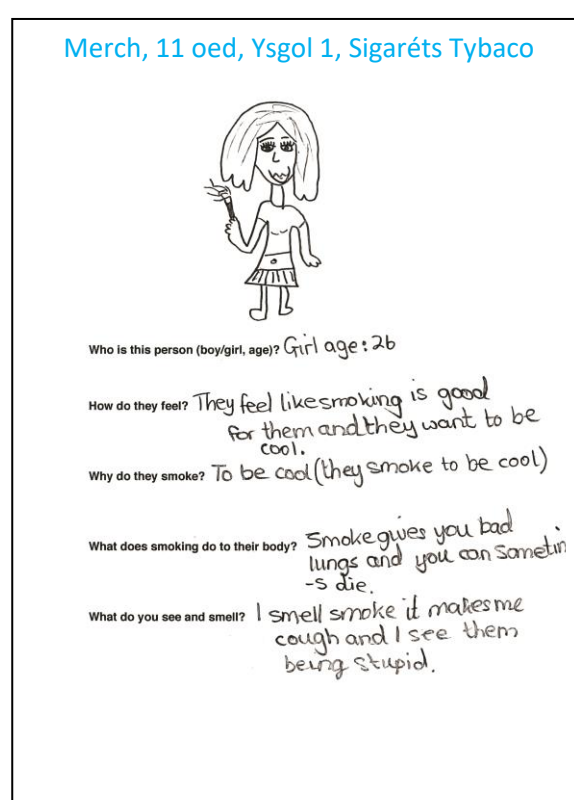 Merch, 11 oed, Ysgol 1, Sigaréts Tybaco
Who is this person (boy/girl, age)? Girl age: 26
How do they feel? They feel like smoking is good
for them and they want to be
cool.
Why do they smoke? To be cool (they smoke to be cool)
What does smoking do to their body? Smoke gives you bad
lungs and you can sometim
-s die.
What do you see and smell? I smell smoke it makes me
cough and I see them
being stupid.